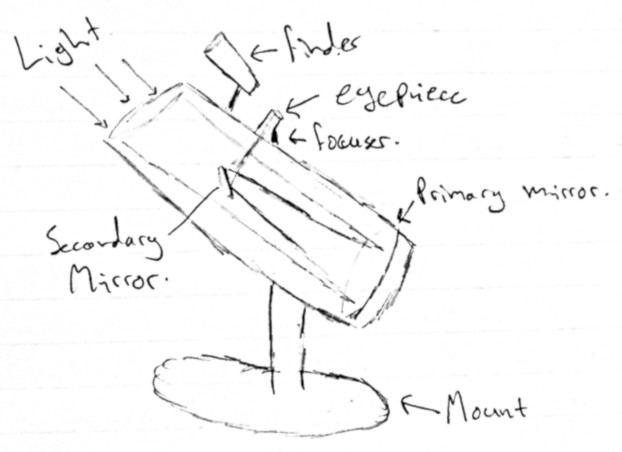 Light
finder
eyepiece
focuser.
Primary mirror.
Secondary
Mirror.
Mount